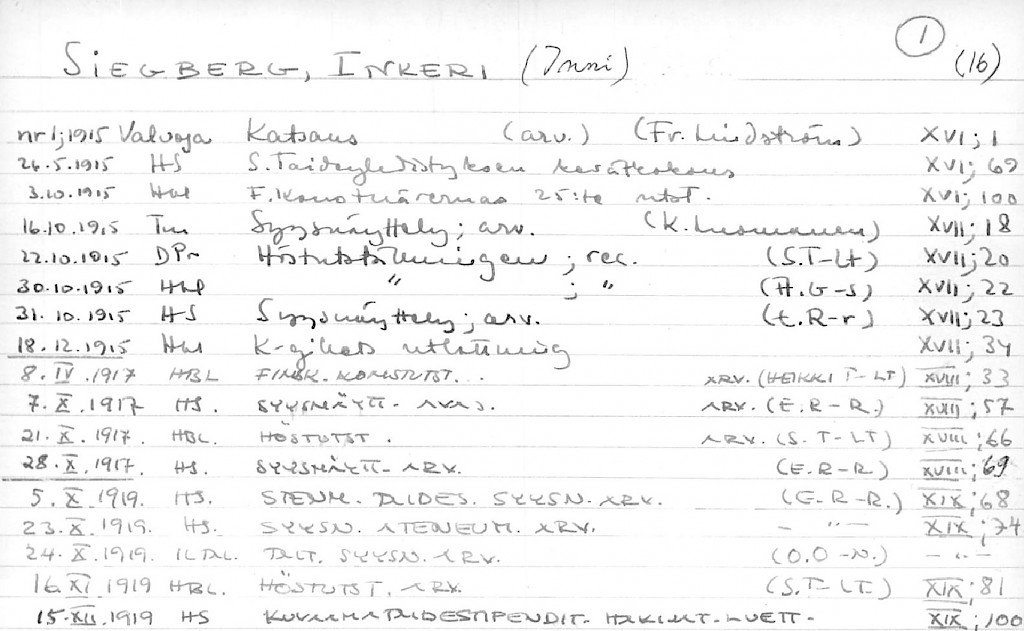 1
SIEGBERG, INKERI (Inni) (16)
nr 1; 1915 Valvoja Katsaus (arv.) (Fr. Lindström) XVI; 1
26.5.1915 HS S. Taideyhdistyksen kevätkokous XVI; 69
3.10.1915 Hbl F. Konstnärernas 25:te utst. XVI; 100
16.10.1915 Tm Syysnäyttely; arv. (K. Luomanen) XVII; 18
22.10.1915 DPr Höstutställningen; rec. (S.T-lt) XVII; 20
30.10.1915 Hbl " ; " (H.G-s) XVII; 22
31.10.1915 HS Syysnäyttely; arv. (E.R-r) XVII; 23
18.12.1915 Hbl K-gillets utlottning XVII; 34
8.IV.1917 HBL FINSK. KONSTUTST... ARV. (HEIKKI T-LT) XVIII; 33
7.X.1917 HS. SYYSNÄYTT- AVAJ. ARV. (E.R-R.) XVIII; 57
21.X.1917. HBL. HÖSTUTST. ARV. (S.T-LT) XVIII; 66
28.X.1917. HS. SYYSNÄYTT- ARV. (E.R-R) XVIII; 69
5.X.1919. HS. STENM. TAIDES. SYYSN. ARV. (E.R-R.) XIX; 68
23.X.1919. HS. SYYSN. ATENEUM. ARV. - " - XIX; 74
24.X.1919. ILTAL. TAIT. SYYSN. ARV. (O.O-N.) - " -
16.XI.1919 HBL. HÖSTUTST. ARV. (S.T-LT.) XIX; 81
15.XII.1919 HS KUVAAMATAIDESTIPENDIT- HAKIJAT- LUETT- XIX; 100